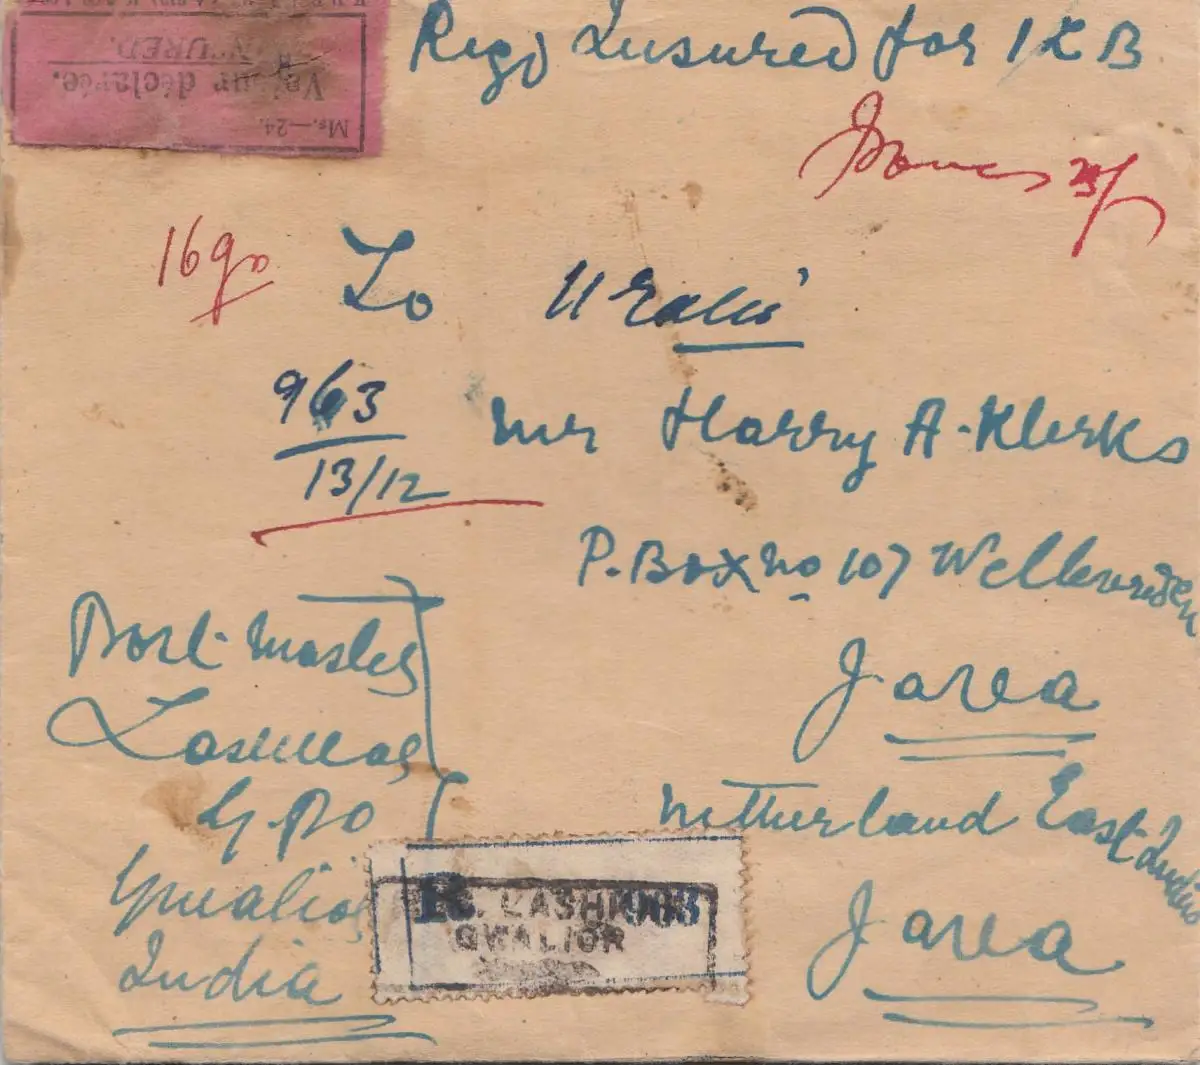 Ms.—24.
Valeur déclarée.
INSURED.
Regd Insured for 1 K B
16 ga
To
963
13/12
Mr Harry A. Klerks
P. Box No 107 Weltevreden
Java
Netherland East India
Java
Post Master
Lashkar
G.P.O
Gwalior
India
R. LASHKAR
963
GWALIOR